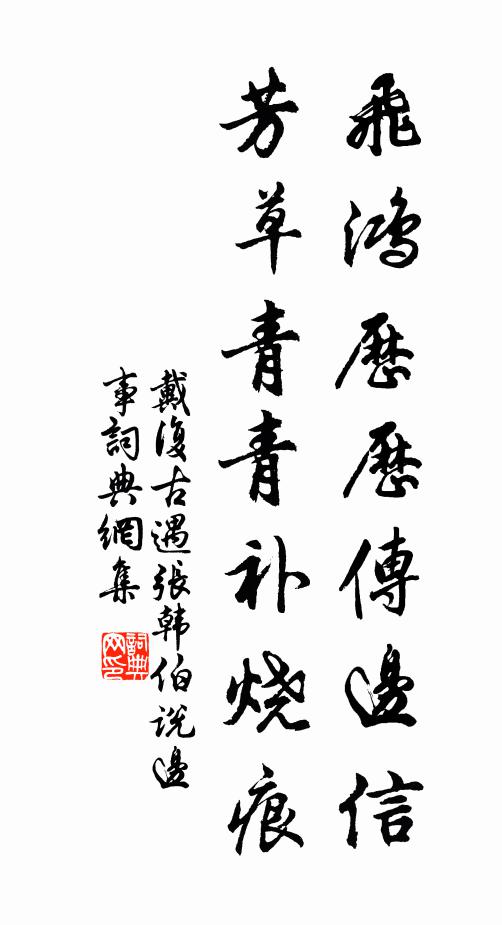 飛鴻歷歷傳邊信
芳草青青补烧痕
戴復古遇張韩伯説邊
事詞典網集